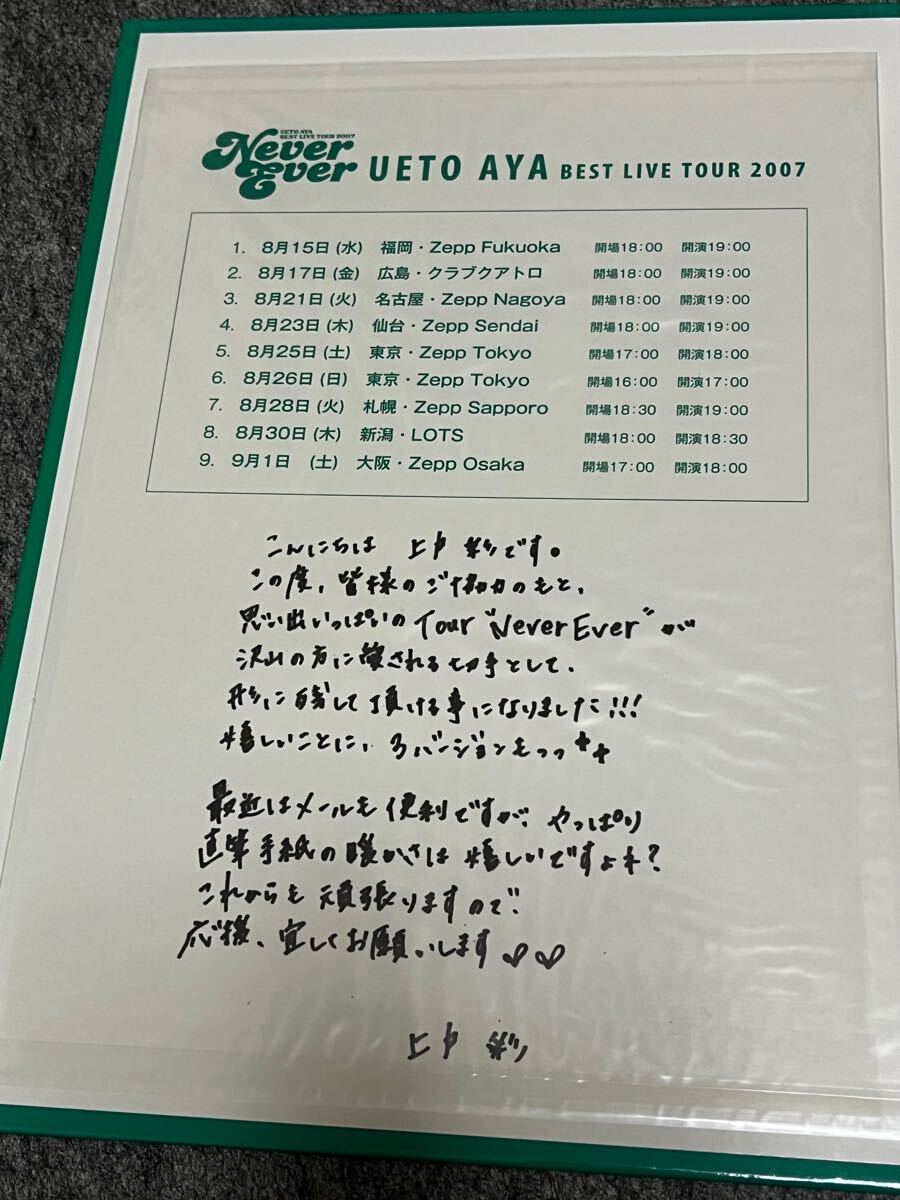 UETO AYA
BEST LIVE TOUR 2007
Never
Ever
UETO AYA BEST LIVE TOUR 2007
1. 8月15日(水) 福岡・Zepp Fukuoka 開場18:00 開演19:00
2. 8月17日(金) 広島・クラブクアトロ 開場18:00 開演19:00
3. 8月21日(火) 名古屋・Zepp Nagoya 開場18:00 開演19:00
4. 8月23日(木) 仙台・Zepp Sendai 開場18:00 開演19:00
5. 8月25日(土) 東京・Zepp Tokyo 開場17:00 開演18:00
6. 8月26日(日) 東京・Zepp Tokyo 開場16:00 開演17:00
7. 8月28日(火) 札幌・Zepp Sapporo 開場18:30 開演19:00
8. 8月30日(木) 新潟・LOTS 開場18:00 開演18:30
9. 9月1日 (土) 大阪・Zepp Osaka 開場17:00 開演18:00
こんにちは 上戸 彩です。
この度、皆様のご協力のもと、
思い出いっぱいの Tour "Never Ever" が
沢山の方に愛される切手として、
形に残して頂ける事になりました!!!
嬉しいことに、3バージョンもっっ
最近はメールも便利ですが、やっぱり
直筆手紙の暖かさは嬉しいですよね?
これからも頑張りますので、
応援、宜しくお願いします♡♡
上戸 彩